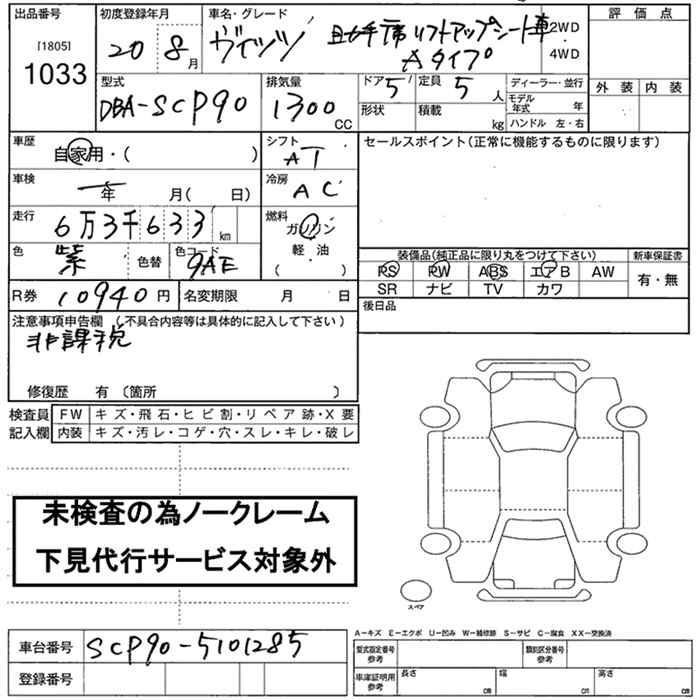 出品番号 初度登録年月 車名・グレード 評価点
[1805] 1033 20 8月 ヴィッツ 助手席リフトアップシート車 2WD
Aタイプ 4WD
外装 内装
型式 排気量 ドア 定員 ディーラー・並行
DBA-SCP90 1300 CC 5 5 人 モデル年式 年
形状 積載 kg ハンドル 左・右
車歴 自家用・( ) シフト AT セールスポイント(正常に機能するものに限ります)
車検 年 月( 日) 冷房 AC
走行 6万3千633 km 燃料 ガソリン
軽・油
( )
色 紫 色替 色コード 9AE
装備品(純正品に限り丸をつけて下さい) 新車保証書
PS PW ABS エアB AW 有・無
SR ナビ TV カワ
R券 10940円 名変期限 月 日
後日品
注意事項申告欄 (不具合内容等は具体的に記入して下さい)
非課税
修復歴 有 〔箇所 〕
検査員 FW キズ・飛石・ヒビ割・リペア跡・X要
記入欄 内装 キズ・汚レ・コゲ・穴・スレ・キレ・破レ
未検査の為ノークレーム
下見代行サービス対象外
スペア
A-キズ E-エクボ U-凹み W-補修跡 S-サビ C-腐食 XX-交換済
車台番号 SCP90-5101285
型式指定番号 参考 類別区分番号 参考
登録番号
車庫証明用 参考 長さ cm 幅 cm 高さ cm